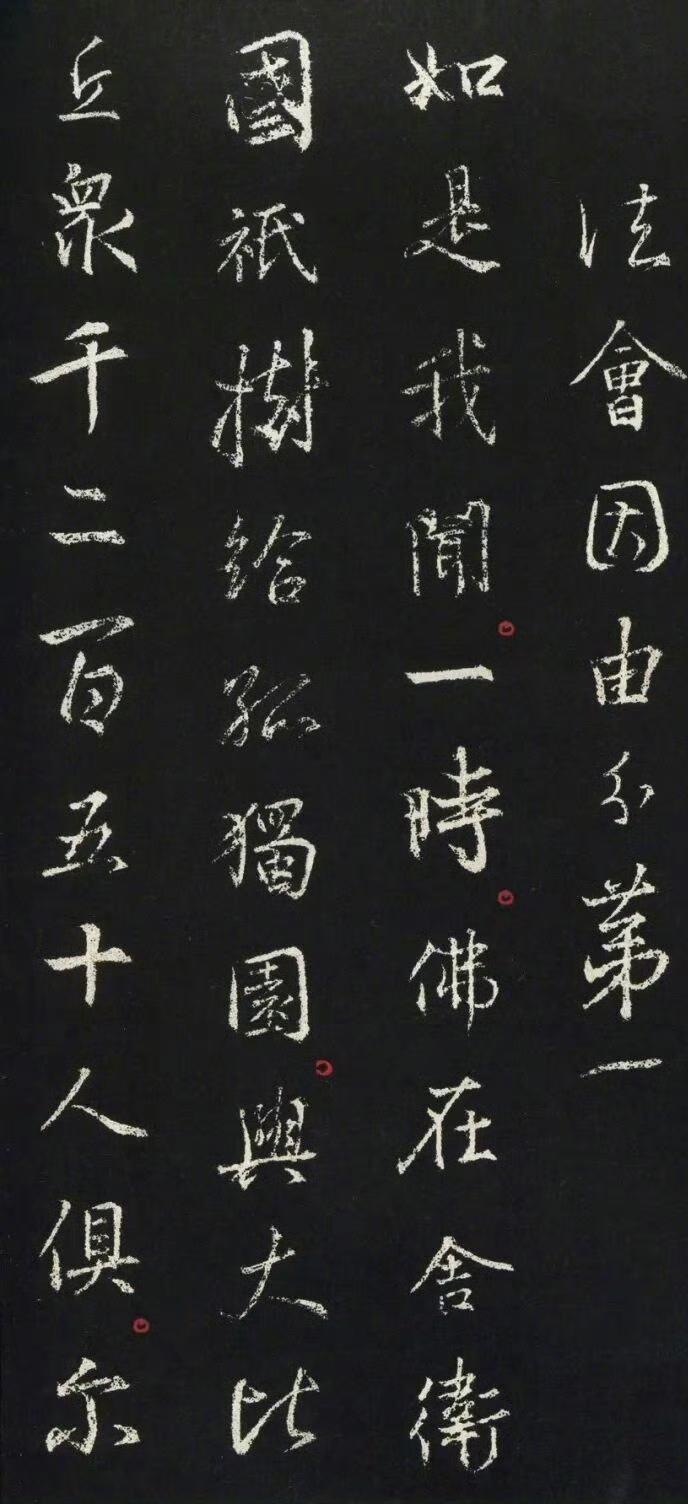 法會因由分第一
如是我聞一時佛在舍衛
國祇樹給孤獨園與大比
丘眾千二百五十人俱尔